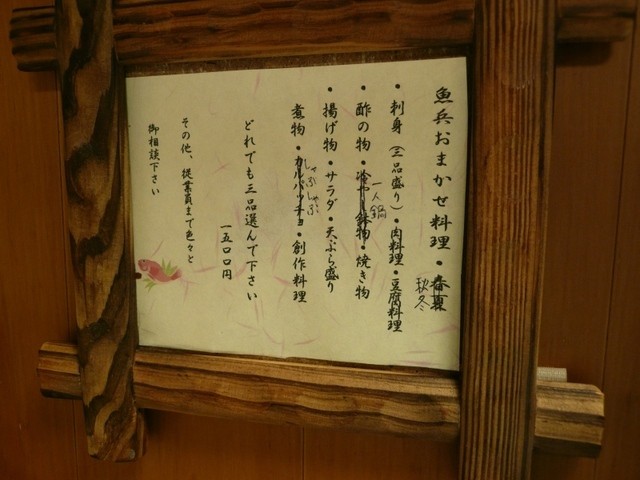 魚兵おまかせ料理・春夏
秋冬
・刺身（三品盛り）・肉料理・豆腐料理
・酢の物・冷やし鉢物・焼き物
一人鍋
・揚げ物・サラダ・天ぷら盛り
煮物・カルパッチョ・創作料理
しゃぶしゃぶ
どれでも三品選んで下さい
一五〇〇円
その他、従業員まで色々と
御相談下さい